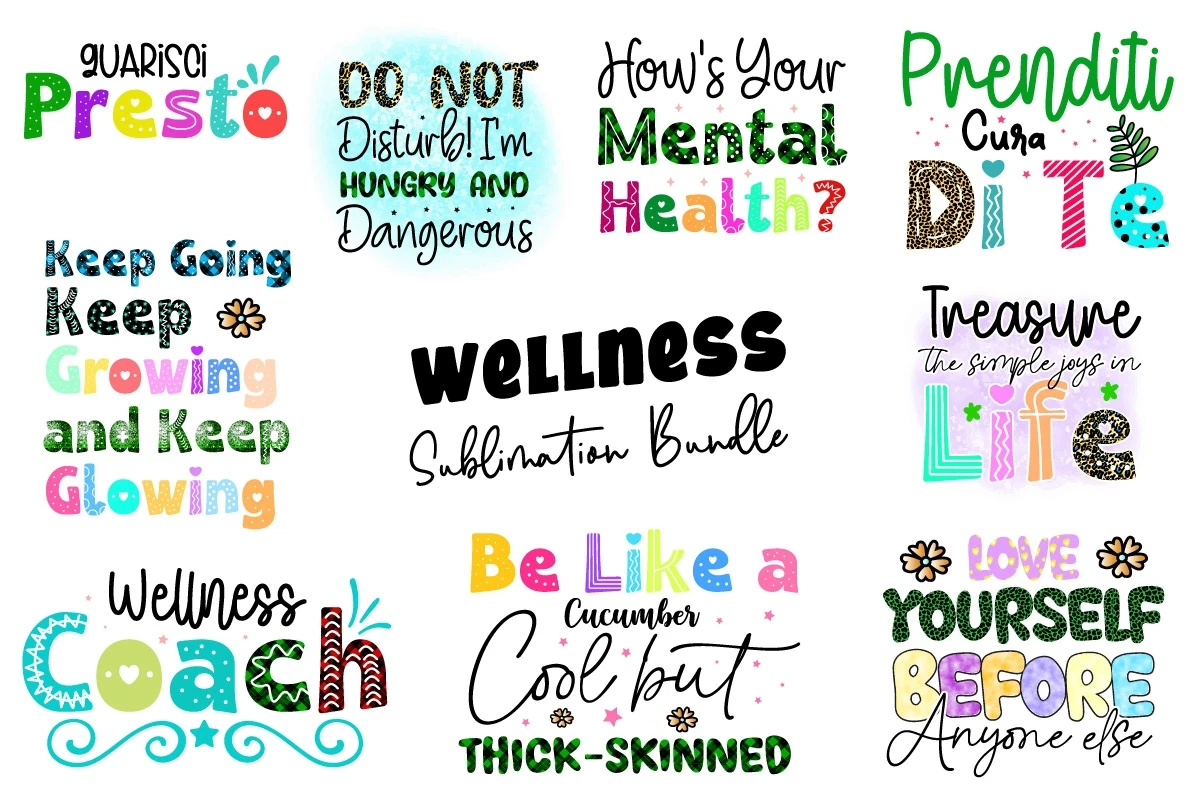 guarisci
Presto
DO NOT
Disturb! I'm
HUNGRY AND
Dangerous
How's Your
Mental
Health?
Prenditi
Cura
Di Te
Keep Going
Keep
Growing
and Keep
Glowing
Wellness
Sublimation Bundle
Treasure
the simple joys in
Life
Wellness
Coach
Be Like a
Cucumber
Cool but
THICK-SKINNED
LOVE
YOURSELF
BEFORE
Anyone else